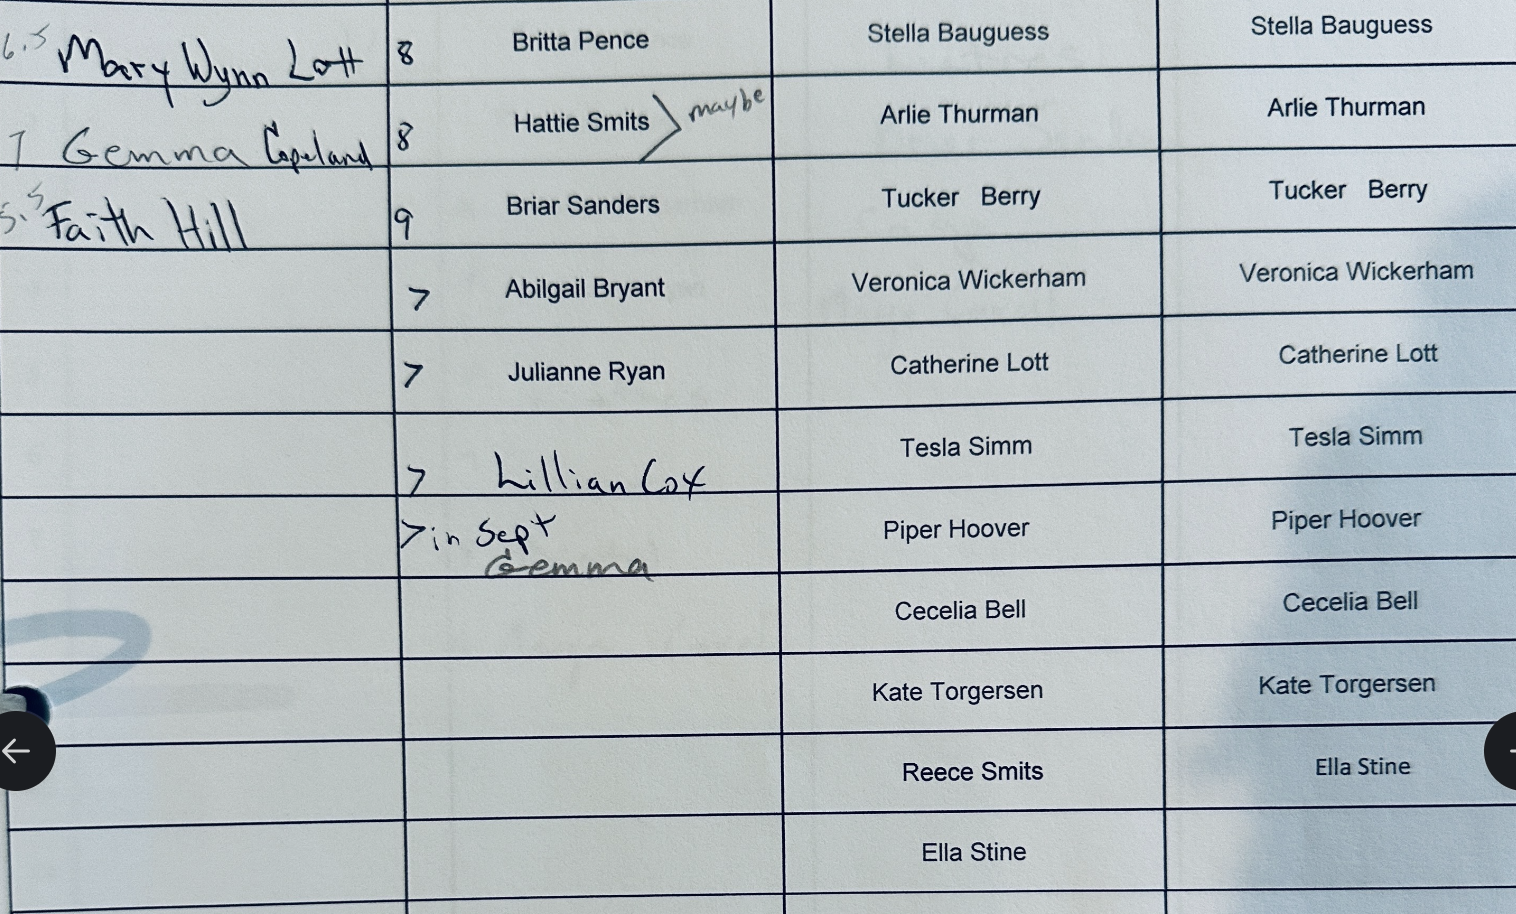 6.5 Mary Wynn Lott 8 Britta Pence Stella Bauguess Stella Bauguess
7 Gemma Copeland 8 Hattie Smits > maybe Arlie Thurman Arlie Thurman
5.5 Faith Hill 9 Briar Sanders Tucker Berry Tucker Berry
7 Abilgail Bryant Veronica Wickerham Veronica Wickerham
7 Julianne Ryan Catherine Lott Catherine Lott
7 Lillian Cox Tesla Simm Tesla Simm
7 in Sept Piper Hoover Piper Hoover
Gemma
Cecelia Bell Cecelia Bell
Kate Torgersen Kate Torgersen
Reece Smits Ella Stine
Ella Stine